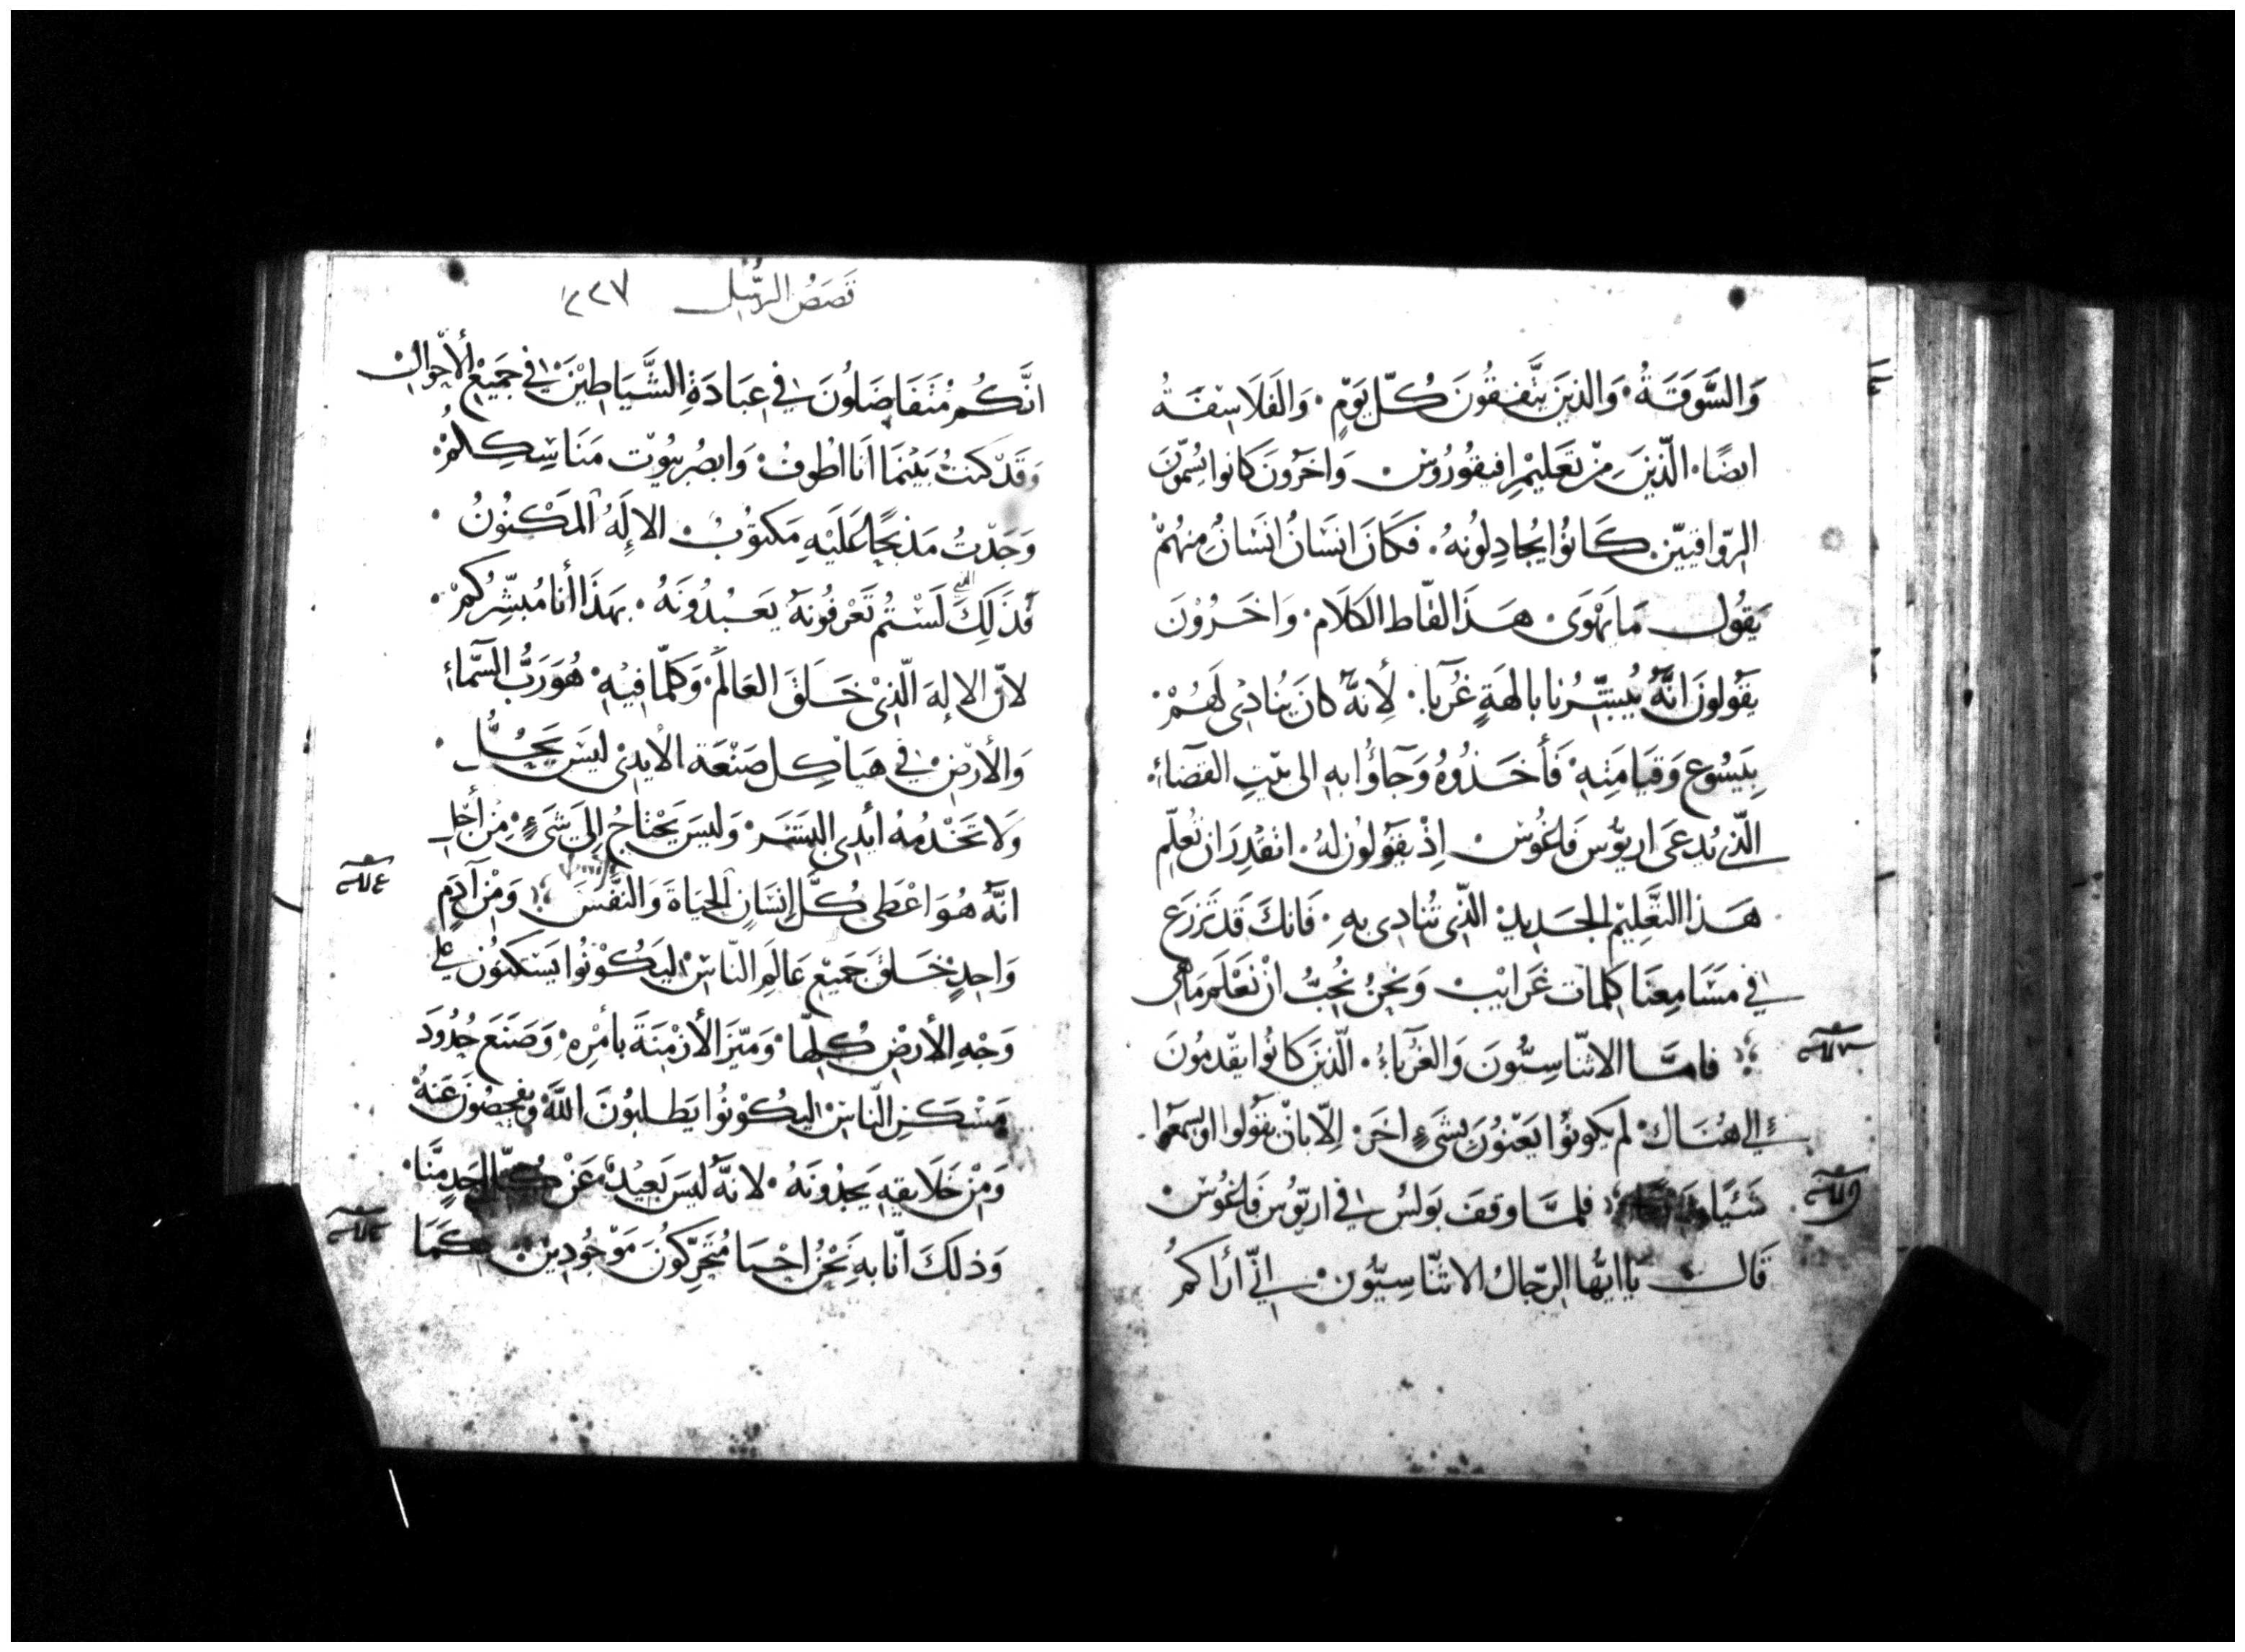 وَالسَّوَقَةُ. وَالذينَ يتَّفقُونَ كُلّ يَوْمٍ. وَالفَلَاسِفَةُ
ايضًا. الّذينَ مِنْ تَعَليْمِ افيقُورُوسْ وَاخَرُونَ كانوا يُسَمّونَ
الرّوَاقييّنْ. كَانوُا يُجادِلونهُ. فَكَانَ انسَانُ انسَانُ مِنهُمْ
يَقوُل مَا يَهْوَى هَذَا لقّاط الكَلَام. وَاخَرُوْنَ
يَقُولونَ انَّهُ يُبشّرُنا بالهَةٍ غُرَبآ. لأِنهُ كانَ يُنادِى لَهُمْ.
بِيَسُوع وَقيَامَتِهِ. فَأَخَذُوهُ وَجَآؤُا بهِ الى بيْتِ القضآءِ.
الّذى يُدعَى اريوُّسَ فَاغُوسْ اِذْ يَقوُلوُن لهُ. انقدِرَ ان نعلّم
هَذا التَّعْلِيْم الجَديدِ الذّى تُنادِى بهِ. فَانكَ قَد تزرَع
فى مَسَامِعنَا كلِمَات غَرَائِبْ وَنحْنُ نُحِبُّ انْ نَعْلَمَ مَاهى
فامَّا الاثنّاسِيُّونَ وَالغرَباءُ. الّذينَ كانوُا يقدمِوُنَ
الى هُنَاك. لَم يكونوُا يَعْنوُنَ بشَىءٍ اخَر. اِلاّ بانْ يقولوا اوْ يسمَعوُا
شَئيًا فلمَّا وقفَ بَولسُ فى اريّوُسَ فَاغُوسْ.
قَال يا ايهُّا الرّجالُ الاثنّاسِيّوُن. انّي أراكمُ
قَصَصُ الرسُّل ٢٢٧
انَّكُم مُتفَاضَلوُنَ فى عبَادَةِ الشَّيَاطِيْنَ فى جَميْع الأحْوَال
وَقَدْ كنتُ بَيْنَمَا اَنا اطُوفُ. وَابصُر بيُوْت مَنَاسِككِمُ
وَجَدْتُ مَذبَحًا عَلَيْهِ مَكتوُبْ الاِلَهُ المَكْنوُنُ.
فَذَلِكَ لَسْتمُ تَعْرفُونهَ يعَبْدُونَهُ. بهَذَا أنا مُبشّرُكمْ.
لانّ الاِلهَ الّذىْ خَلَقَ العَالمْ. وَكلمّا فيْهِ. هُوَ رَبُّ السَّمآءِ
وَالأرْضِ. فى هَيَاكِل صَنْعَة الأيدِىْ ليَسَ يَحُلُّ.
وَلا تَخْدُمهُ أيدِى البشَر. وَليسَ يَحْتاجُ اِلى شَىءٍ. مِنْ أجْل
انّهُ هُوَ اعْطى كُلّ اِنسَانٍ الحيَاةَ وَالنفْسَ وَمِنْ آدَمٍ
وَاحِدٍ خَلَقَ جَميْع عَالمِ النّاسْ. ليَكُوْنوُا يَسْكنُوُن على
وَجْهِ الأرْضِ كُلِّهَا. وَمَيّزَ الأزْمنَةَ بأمْرِه. وَصَنعَ حُدُودَ
مَسْكَن النّاسْ. ليكُوْنوُا يَطلبوُنَ اللَّهَ وَيفحصُوُنَ عَنهُ
وَمِنْ خَلَايقهِ يَجدُونَهُ. لانّهُ ليسَ بَعيْدًا عَنْ كُلّ احَدٍ مِنَّا.
وَذلكَ انّا بهِ نَحْنُ احْيَا مُتحَركّونَ مَوْجُودِيْن. كَمَا